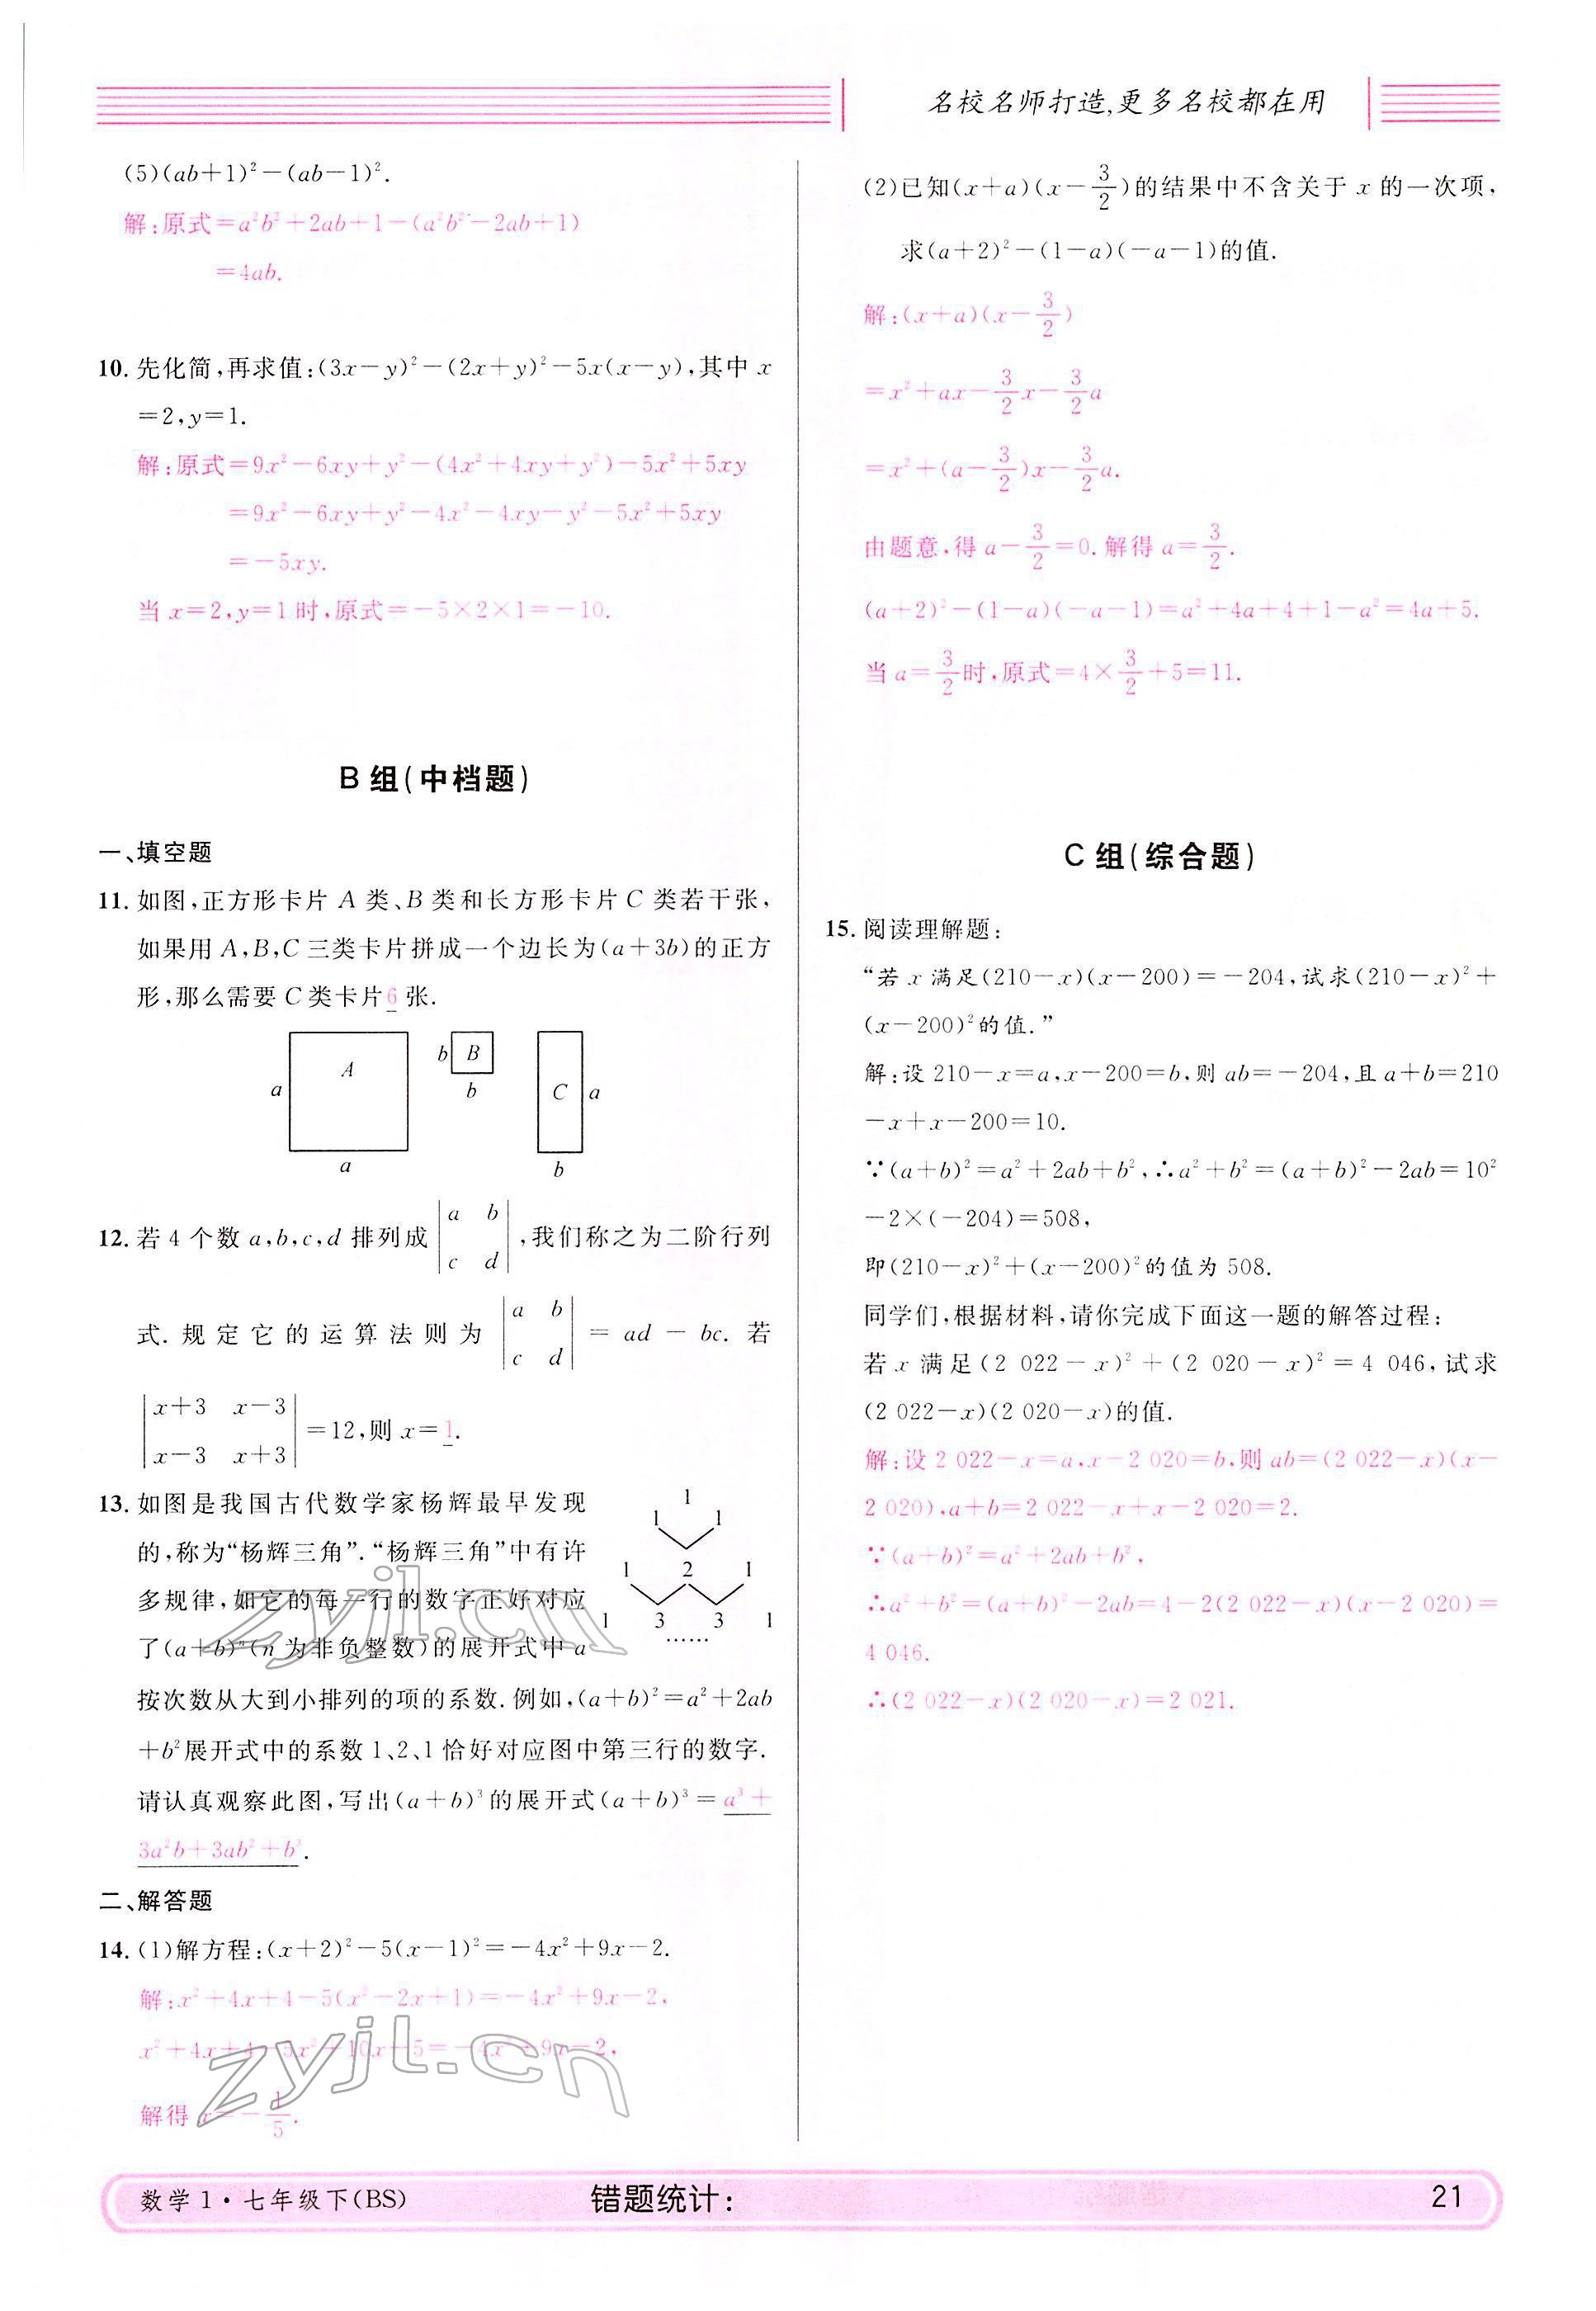 名校名师打造,更多名校都在用
(5)(ab+1)²-(ab-1)².
解:原式=a²b²+2ab+1-(a²b²-2ab+1)
=4ab.
10. 先化简,再求值:(3x-y)²-(2x+y)²-5x(x-y),其中 x
=2,y=1.
解:原式=9x²-6xy+y²-(4x²+4xy+y²)-5x²+5xy
=9x²-6xy+y²-4x²-4xy-y²-5x²+5xy
=-5xy.
当 x=2,y=1时,原式=-5×2×1=-10.
B 组(中档题)
一、填空题
11. 如图,正方形卡片 A 类、B 类和长方形卡片 C 类若干张,
如果用 A,B,C 三类卡片拼成一个边长为(a+3b)的正方
形,那么需要 C 类卡片 6 张.
A
a
a
b
B
b
C
a
b
12. 若 4 个数 a,b,c,d 排列成 |a b; c d|,我们称之为二阶行列
式. 规定它的运算法则为 |a b; c d| = ad - bc. 若
|x+3 x-3; x-3 x+3| =12,则 x= 1.
13. 如图是我国古代数学家杨辉最早发现
的,称为“杨辉三角”.“杨辉三角”中有许
多规律,如它的每一行的数字正好对应
了(a+b)ⁿ(n 为非负整数)的展开式中 a
按次数从大到小排列的项的系数. 例如,(a+b)²=a²+2ab
+b²展开式中的系数 1、2、1 恰好对应图中第三行的数字.
请认真观察此图,写出(a+b)³的展开式(a+b)³= a³+
3a²b+3ab²+b³.
1
1 1
1 2 1
1 3 3 1
……
二、解答题
14. (1)解方程:(x+2)²-5(x-1)²=-4x²+9x-2.
解:x²+4x+4-5(x²-2x+1)=-4x²+9x-2,
x²+4x+4-5x²+10x-5=-4x²+9x-2,
解得 x=-1/5.
(2)已知(x+a)(x-3/2)的结果中不含关于 x 的一次项,
求(a+2)²-(1-a)(-a-1)的值.
解:(x+a)(x-3/2)
=x²+ax-3/2x-3/2a
=x²+(a-3/2)x-3/2a.
由题意,得 a-3/2=0.解得 a=3/2.
(a+2)²-(1-a)(-a-1)=a²+4a+4+1-a²=4a+5.
当 a=3/2时,原式=4×3/2+5=11.
C 组(综合题)
15. 阅读理解题:
“若 x 满足(210-x)(x-200)=-204,试求(210-x)²+
(x-200)²的值.”
解:设 210-x=a,x-200=b,则 ab=-204,且 a+b=210
-x+x-200=10.
∵(a+b)²=a²+2ab+b²,∴a²+b²=(a+b)²-2ab=10²
-2×(-204)=508,
即(210-x)²+(x-200)²的值为 508.
同学们,根据材料,请你完成下面这一题的解答过程:
若 x 满足(2 022-x)²+(2 020-x)²=4 046,试求
(2 022-x)(2 020-x)的值.
解:设 2 022-x=a,x-2 020=b,则 ab=(2 022-x)(x-
2 020),a+b=2 022-x+x-2 020=2.
∵(a+b)²=a²+2ab+b²,
∴a²+b²=(a+b)²-2ab=4-2(2 022-x)(x-2 020)=
4 046.
∴(2 022-x)(2 020-x)=2 021.
zyjl.cn
zyjl.cn
数学 1·七年级下(BS)
错题统计:
21